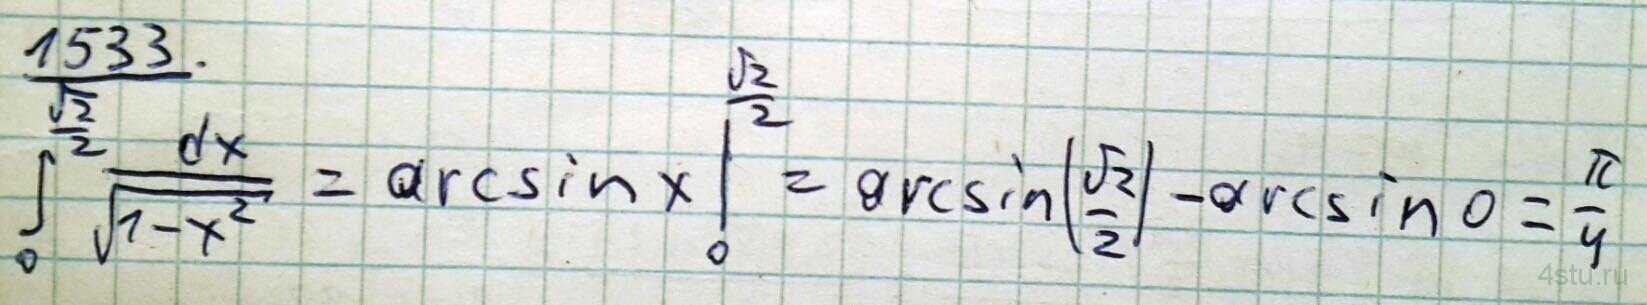 1533.
$\int_0^{\frac{\sqrt{2}}{2}} \frac{dx}{\sqrt{1-x^2}} = \arcsin x \Big|_0^{\frac{\sqrt{2}}{2}} = \arcsin\left(\frac{\sqrt{2}}{2}\right) - \arcsin 0 = \frac{\pi}{4}$
4stu.ru